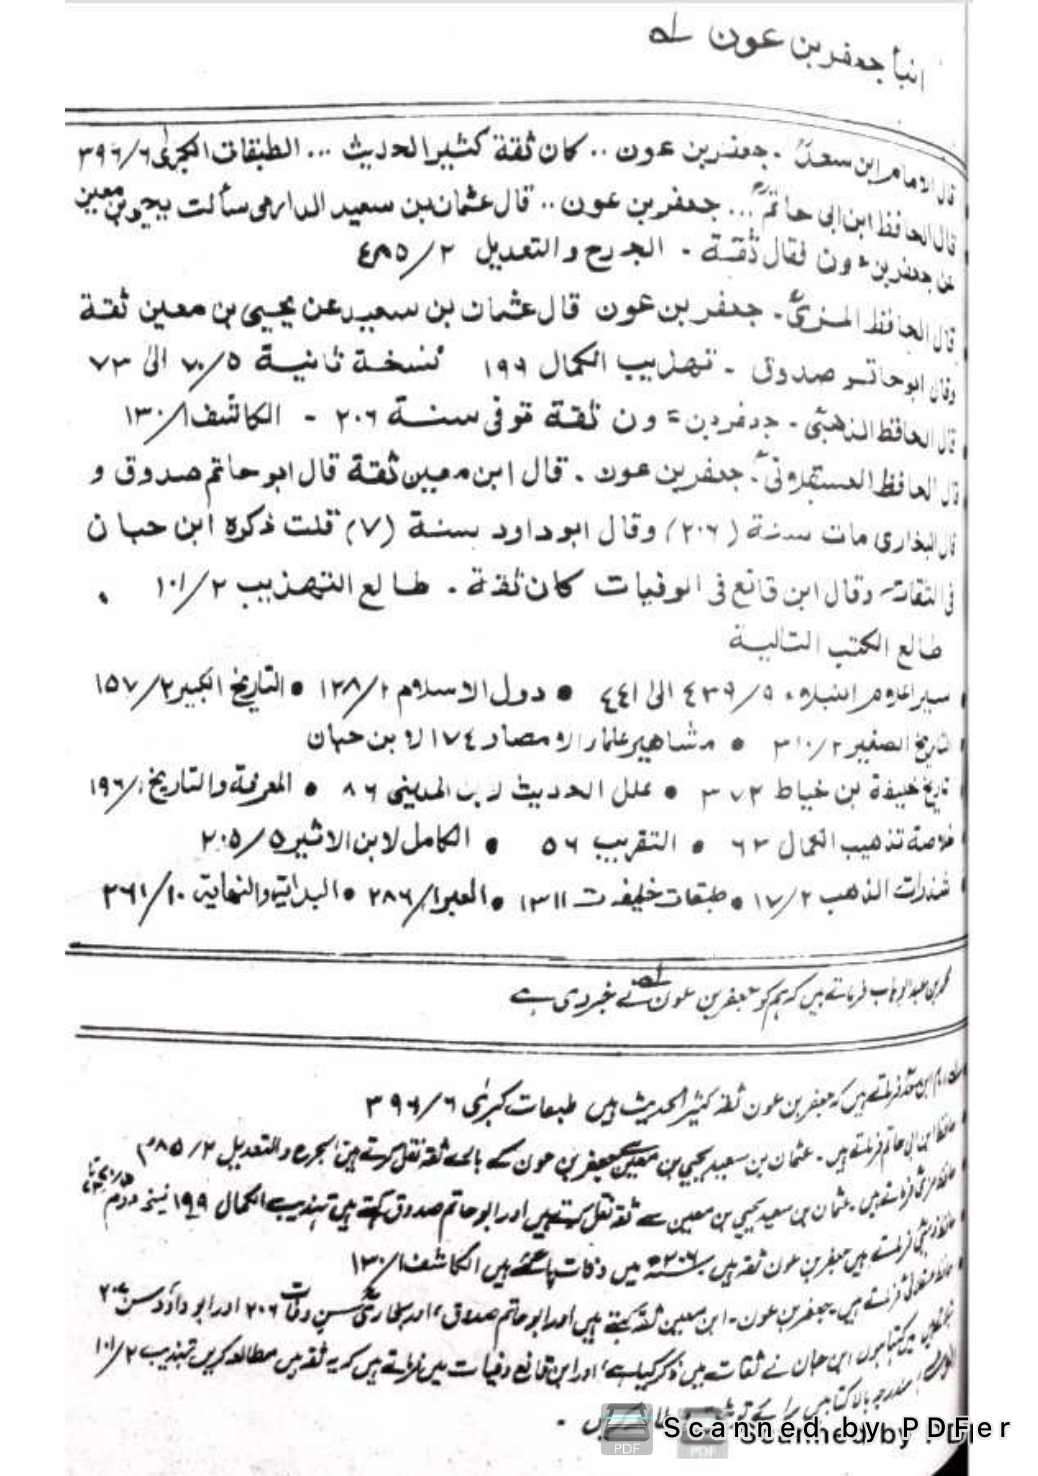 انبأ جعفر بن عون
قال الامام ابن سعد . جعفر بن عون .. كان ثقة كثير الحديث ... الطبقات الكبرى ٦/٣٩٦
قال الحافظ ابن ابى حاتم ... جعفر بن عون .. قال عثمان بن سعيد الدارمى سألت يحيى بن معين
عن جعفر بن عون فقال ثقة . الجرح والتعديل ٢/٤٨٥
قال الحافظ المزى . جعفر بن عون قال عثمان بن سعيد عن يحيى بن معين ثقة
وقال ابوحاتم صدوق . تهذيب الكمال ١٩٩ نسخة ثانية ٥/٧٠ الى ٧٣
قال الحافظ الذهبى . جعفر بن عون ثقة توفى سنة ٢٠٦ - الكاشف ١/١٣٠
قال الحافظ العسقلانى . جعفر بن عون . قال ابن معين ثقة قال ابو حاتم صدوق و
قال البخارى مات سنة (٢٠٦) وقال ابو داود سنة (٧) قلت ذكره ابن حبان
فى الثقات وقال ابن قانع فى الوفيات كان ثقة . طالع التهذيب ٢/١٠١
طالع الكتب التالية
سير اعلام النبلاء ٩/٤٣٩ الى ٤٤١ • دول الاسلام ١/١٢٨ • التاريخ الكبير ٢/١٥٧
التاريخ الصغير ٢/٣١٠ • مشاهير علماء الامصار ١٧٤ لابن حبان
تاريخ خليفة بن خياط ٤٧٢ • علل الحديث لابن المدينى ٨٦ • المعرفة والتاريخ ١/١٩٦
خلاصة تذهيب الكمال ٦٣ • التقريب ٥٦ • الكامل لابن الاثير ٥/٢٠٥
شذرات الذهب ٢/١٧ • طبقات خليفة ت ١٣١١ • العبر ١/٢٨٦ • البداية والنهاية ١٠/٢٦١
محمد بن عبد الوہاب فرماتے ہیں کہ ہم کو جعفر بن عون نے خبر دی ہے
امام ابن سعد فرماتے ہیں کہ جعفر بن عون ثقہ کثیر الحدیث ہیں طبقات کبرٰی ٦/٣٩٦
حافظ ابن ابی حاتم فرماتے ہیں . عثمان بن سعید یحیی بن معین سے جعفر بن عون کے بارے ثقہ نقل کرتے ہیں الجرح والتعدیل ٢/٤٨٥
حافظ مزی فرماتے ہیں . عثمان بن سعید یحیی بن معین سے ثقہ نقل کرتے ہیں اور ابو حاتم صدوق کہتے ہیں تہذیب الکمال ١٩٩ نسخہ دوم
حافظ ذہبی فرماتے ہیں جعفر بن عون ثقہ ہیں ٢٠٦ میں وفات پا گئے ہیں الکاشف ١/١٣٠
حافظ عسقلانی فرماتے ہیں . جعفر بن عون . ابن معین ثقہ کہتے ہیں اور ابو حاتم صدوق، اور بخاری سن وفات ٢٠٦ اور ابو داؤد سن
میں کہتا ہوں ابن حبان نے ثقات میں ذکر کیا ہے، اور ابن قانع وفیات میں فرماتے ہیں کہ یہ ثقہ ہیں مطالعہ کریں تہذیب ٢/١٠١
مندرجہ بالا کتابیں
Scanned by PDFer